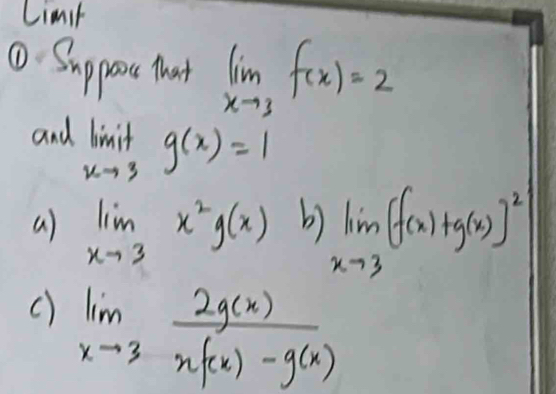 Limit
① Suppose that lim x→3 f(x) = 2
and limit x→3 g(x) = 1
a) lim x→3 x² g(x) b) lim x→3 [f(x) + g(x)]²
c) lim x→3 2g(x) / xf(x) - g(x)